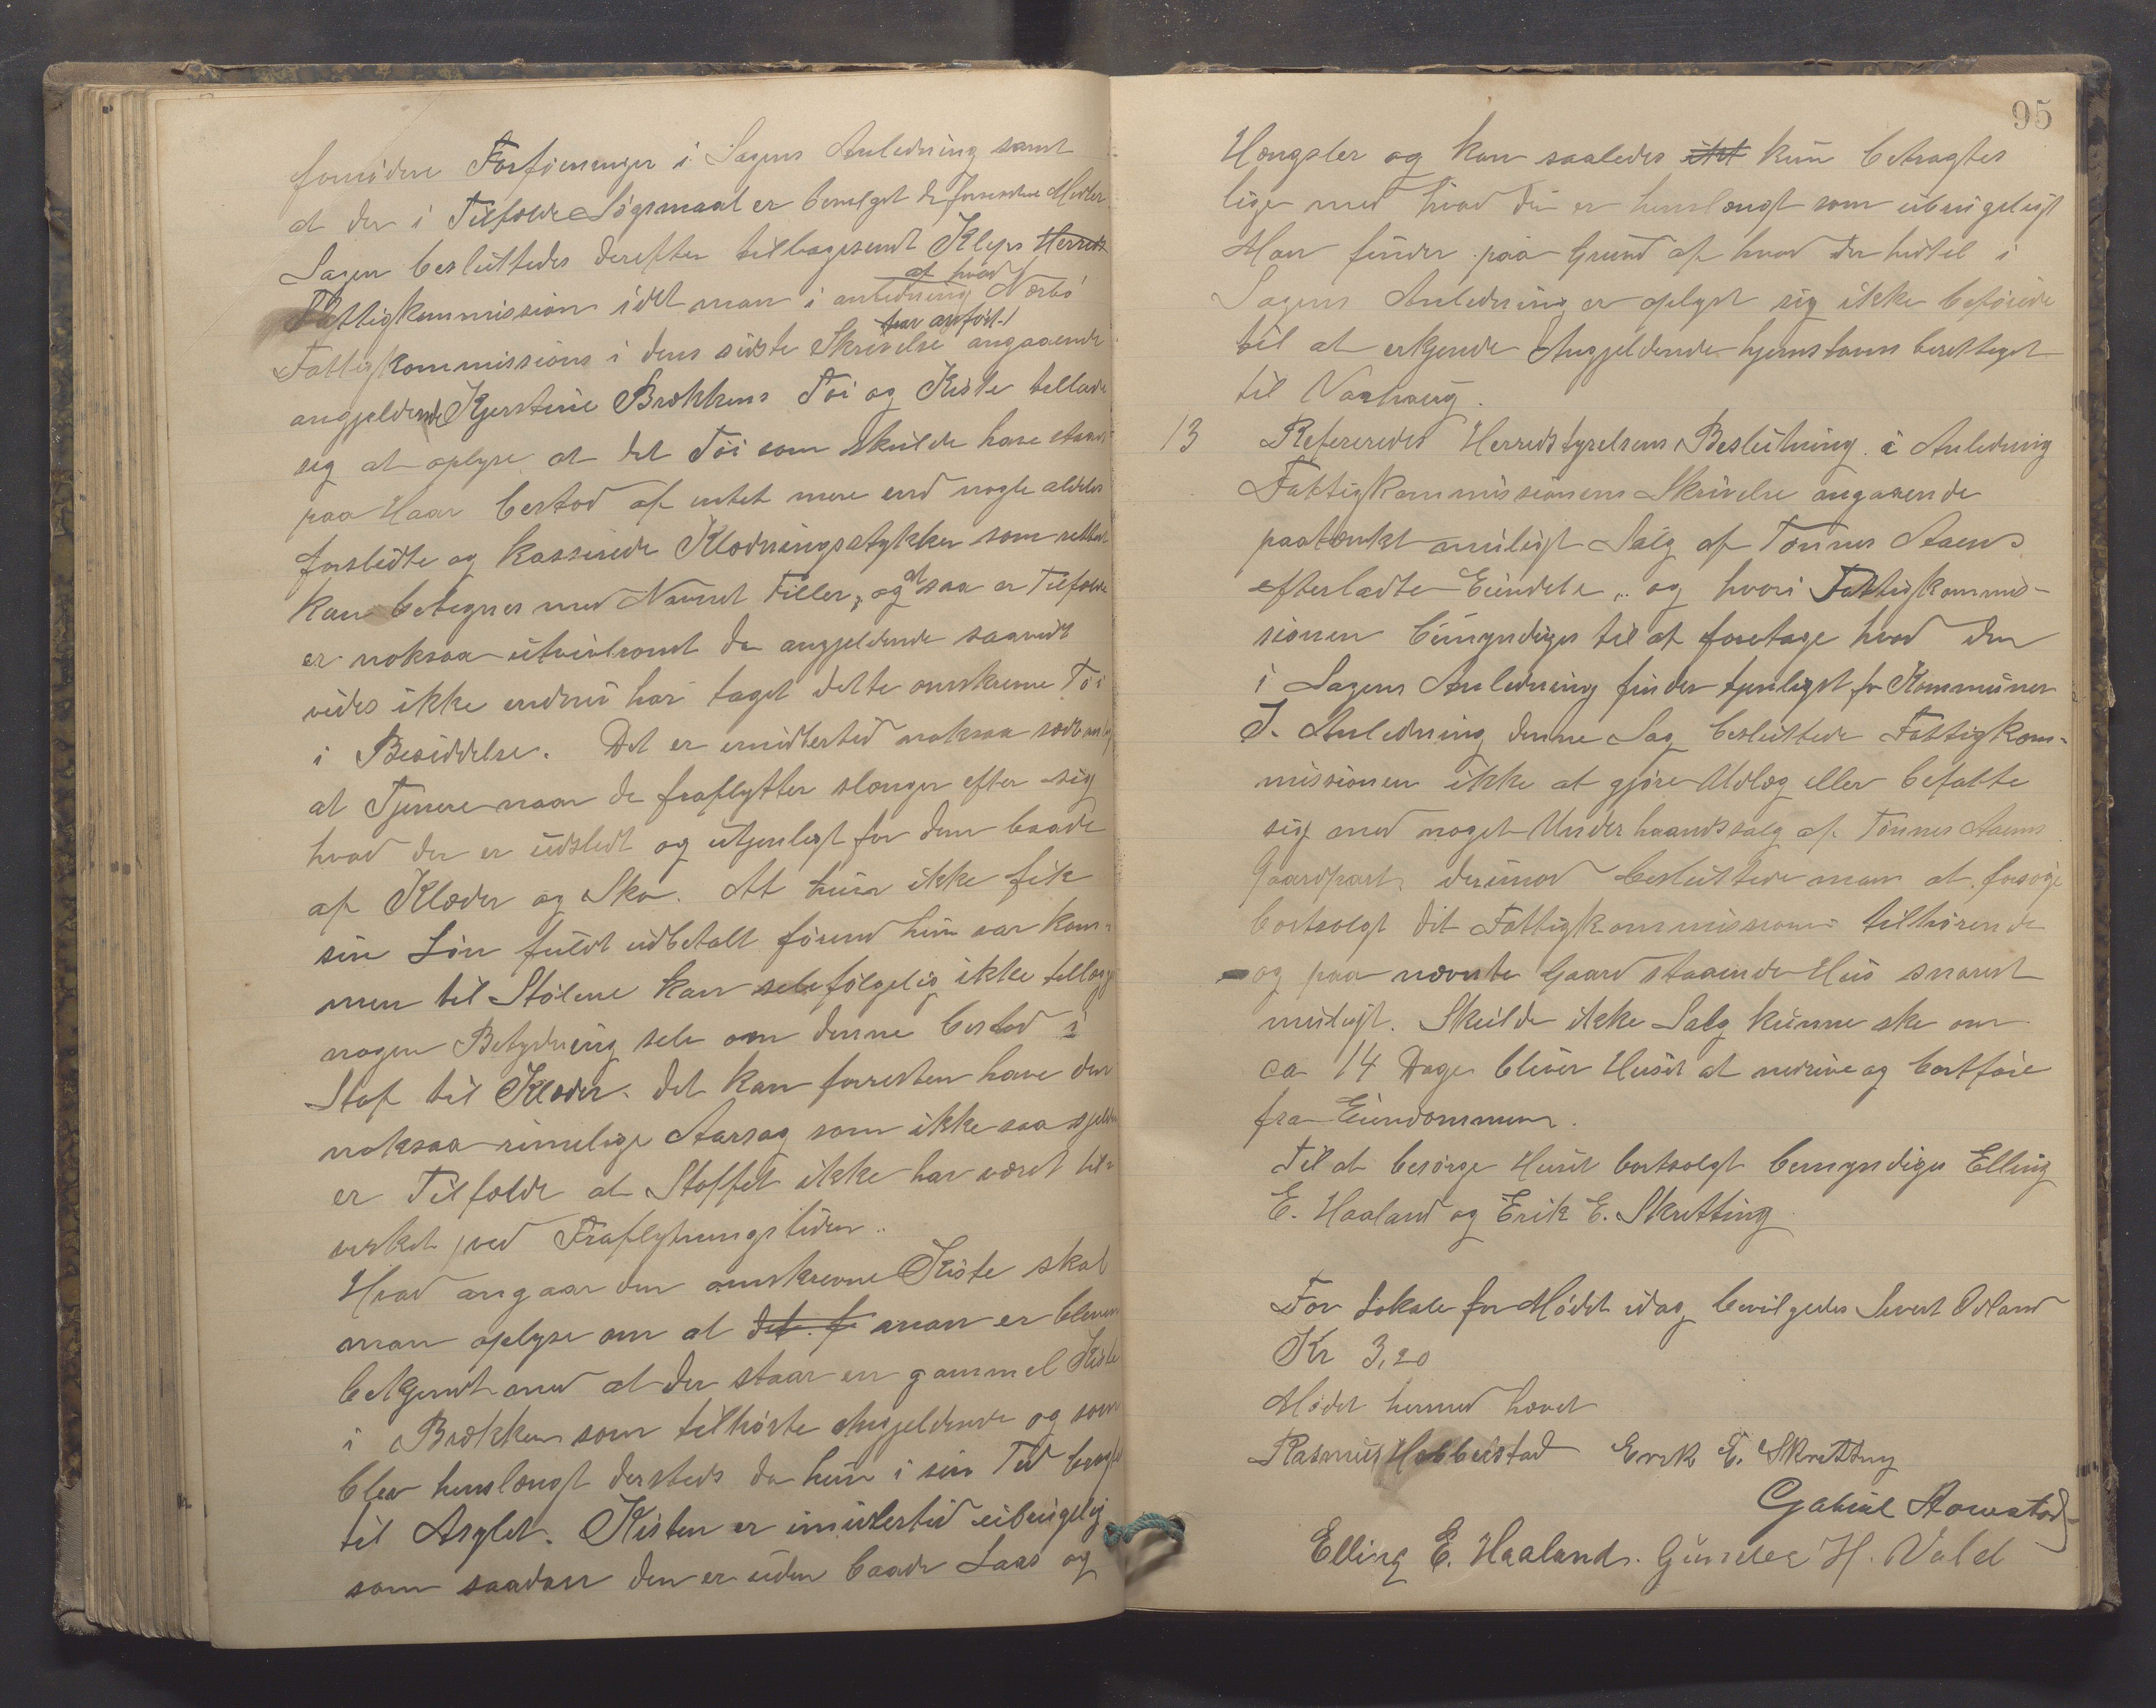 fornødne Forføieninger i Sagens Anledning samt
at der i Tilfælde Søgsmaal er bevilget de fornødne Midler.
Sagen besluttedes derefter tilbagesendt Kleps Herreds
Fattigkommission idet man i anledning af hvad Nærbø
Fattigkommissions i dens sidste Skrivelse har anført angaaende
angjeldende Kjerstine Brækkens Tøi og Kiste tillader
sig at oplyse at det Tøi som skulde have staaet
paa Haar bestod af intet mere end nogle aldeles
forslidte og kasserede Klædningsstykker som rettest
kan betegnes med Navnet Filler, og at saa er Tilfælde
er noksaa utvivlsomt da angjeldende saavidt
vides ikke endnu har taget dette omskrevne Tøi
i Besiddelse. Det er imidlertid noksaa sedvanlig
at Tjenere naar de fraflytter slænger efter sig
hvad der er udslidt og utjenligt for dem baade
af Klæder og Sko. At hun ikke fik
sin Løn fuldt udbetalt førend hun var kom-
men til Stølene kan selvfølgelig ikke tillægges
nogen Betydning selv om denne bestod i
Stof til Klæder. Det kan forresten have den
noksaa rimelige Aarsag som ikke saa sjelden
er Tilfælde at Stoffet ikke har været til-
virket ved Fraflytningstiden.
Hvad angaar den omskrevne Kiste skal
man oplyse om at det f man er bleven
bekjendt med at der staar en gammel Kiste
i Brækken som tilhørte Angjeldende og som
blev henslængt dersteds da hun i sin Tid bragtes
til Asylet. Kisten er imidlertid ubrugelig
som saadan den er uden baade Laas og
95
Hængsler og kan saaledes ikke kun betragtes
lige med hvad der er henslængt som ubrugeligt
Man finder paa Grund af hvad der hidtil i
Sagens Anledning er oplyst sig ikke beføiede
til at erkjende Angjeldende hjemstavnsberettiget
til Varhaug.
13 Refereredes Herredstyrelsens Beslutning i Anledning
Fattigkommissionens Skrivelse angaaende
paatænkt muligt Salg af Tønnes Aaens
efterladte Eiendele, og hvori Fattigkommis-
sionen bemyndiges til at foretage hvad den
i Sagens Anledning finder tjenligst for Kommunen
I Anledning denne Sag besluttede Fattigkom-
missionen ikke at gjøre Udlæg eller befatte
sig med noget Underhaandssalg af Tønnes Aaens
Gaardpart, derimod besluttede man at forsøge
bortsolgt det Fattigkommissionen tilhørende
og paa nævnte Gaard staaende Hus snarest
muligt. Skulde ikke Salg kunne ske om
ca 14 Dage bliver Huset at nedrive og bortføre
fra Eiendommen.
Til at besørge Huset bortsolgt bemyndiges Elling
E. Haaland og Erik E. Skretting
For Lokale for Mødet idag bevilgedes Sivert Odland
Kr 3,20
Mødet hermed hævet
Rasmus Hobbelstad Erik E. Skretting
Gabriel Aarestad
Elling E. Haaland. Gunder H. Vold